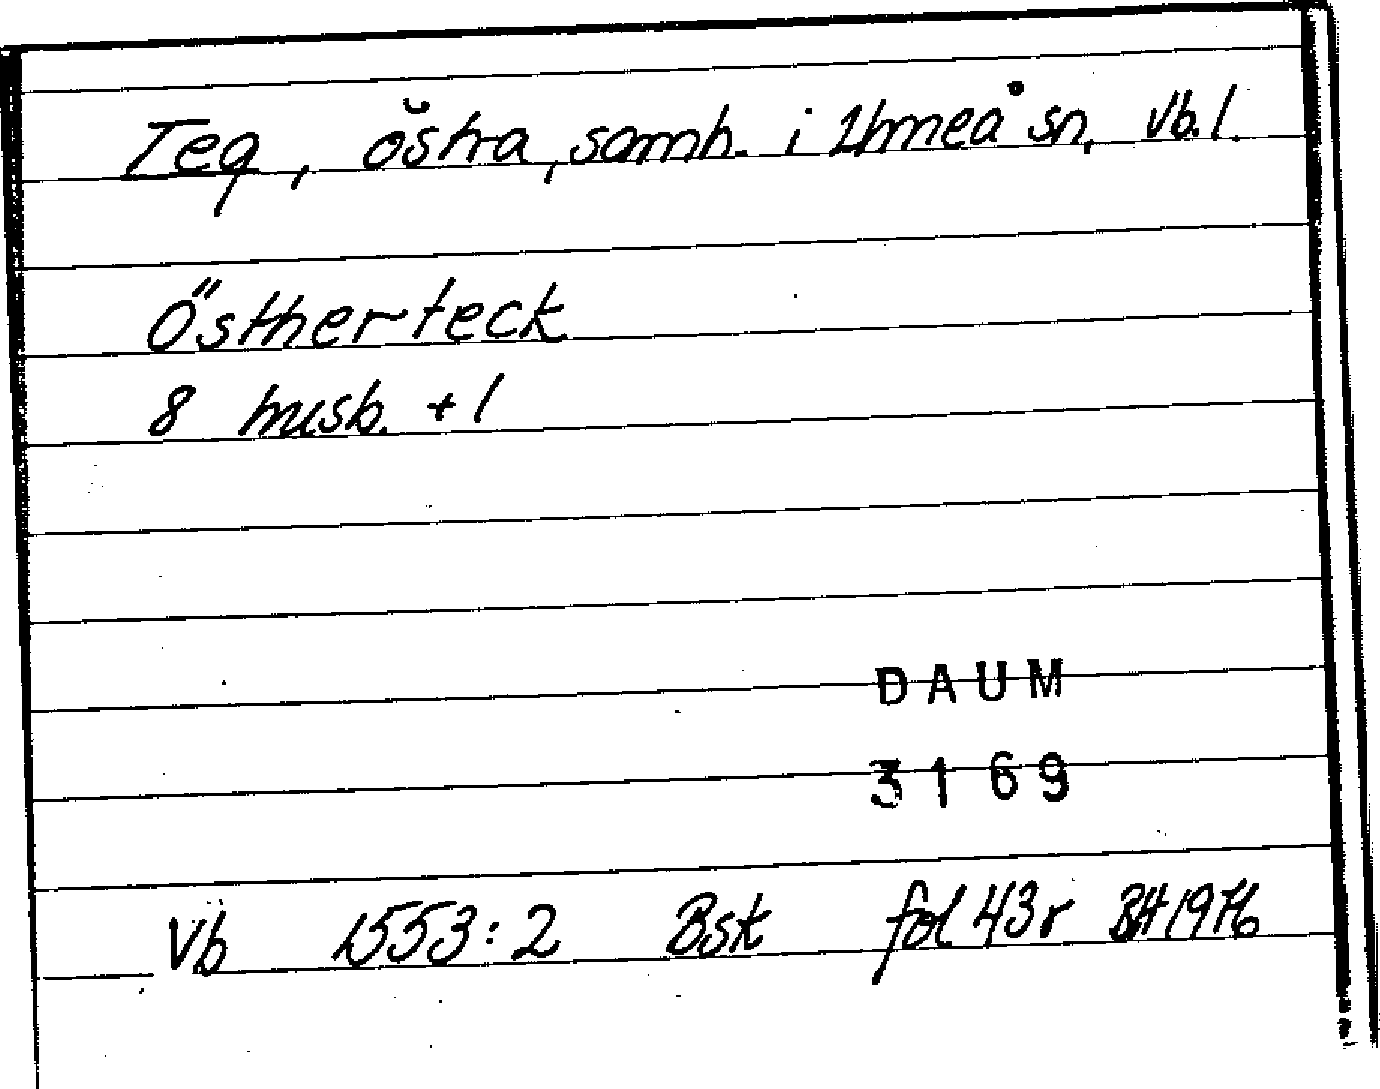 Teg, östra, samh. i Umeå sn, Vb. l.
Östherteck
8 husb. + 1
DAUM
3169
Vb 1553:2 Bsk fol 43r BH 1976